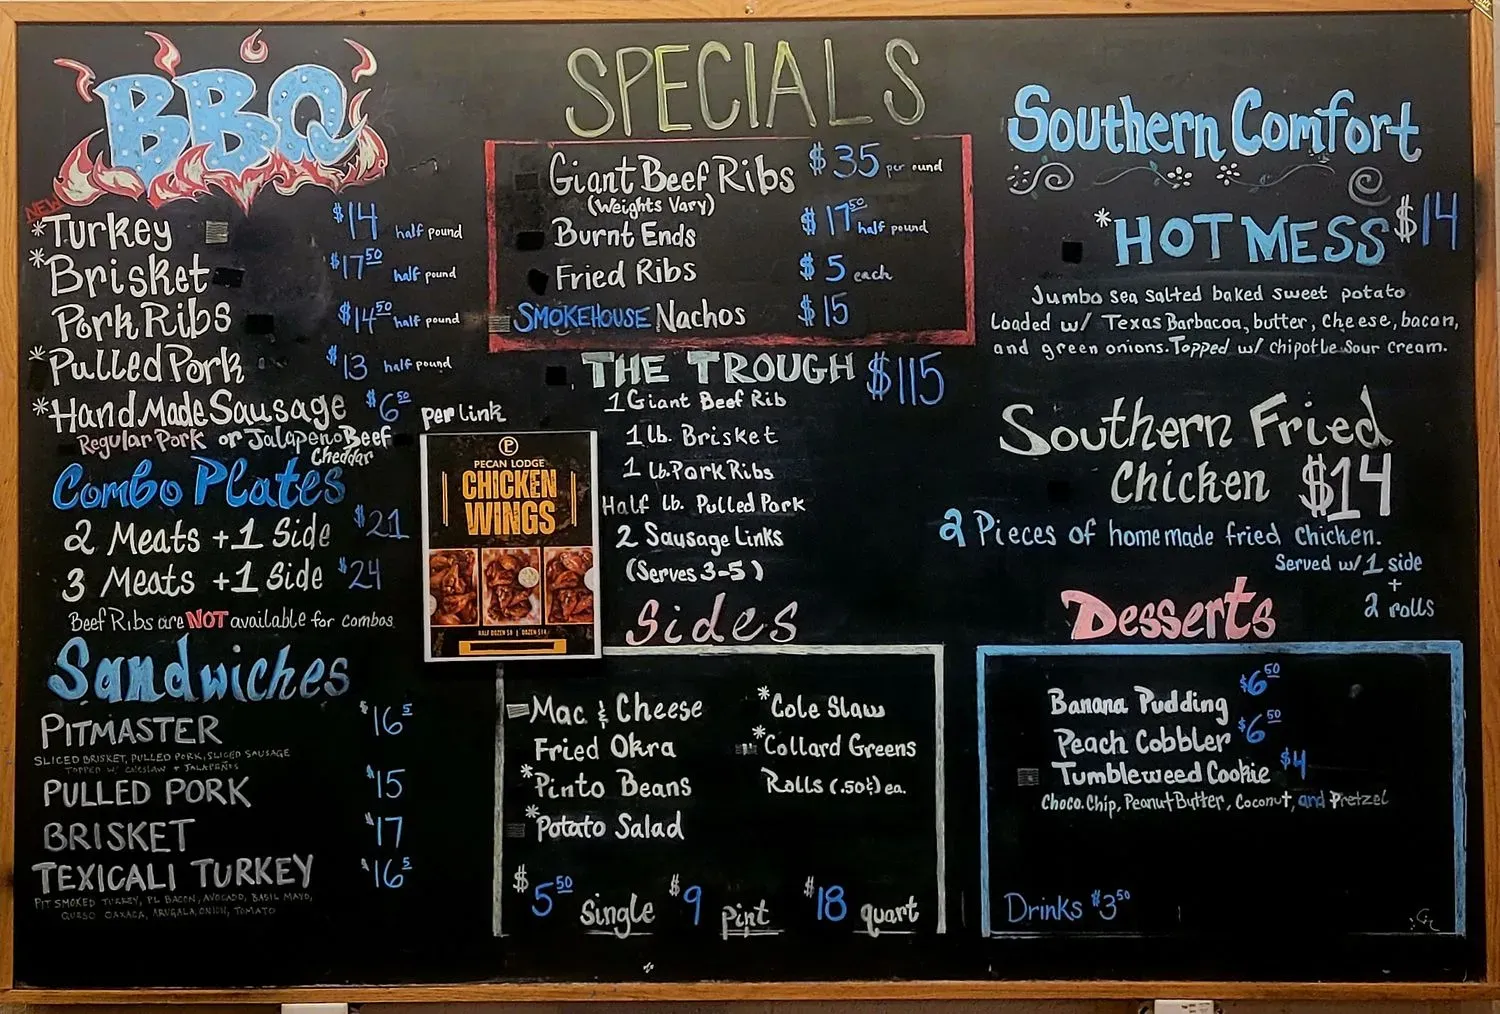 BBQ
NEW
*Turkey $14 half pound
*Brisket $17.50 half pound
Pork Ribs $14.50 half pound
*Pulled Pork $13 half pound
*Hand Made Sausage $6.50 per link
Regular Pork or Jalapeno Beef
Cheddar
Combo Plates
2 Meats + 1 Side $21
3 Meats + 1 Side $24
Beef Ribs are NOT available for combos
Sandwiches
PITMASTER $16.5
SLICED BRISKET, PULLED PORK, SLICED SAUSAGE
TOPPED W/ + JALAPEÑOS
PULLED PORK $15
BRISKET $17
TEXICALI TURKEY $16.5
PIT SMOKED TURKEY, PL BACON, AVOCADO, BASIL MAYO,
QUESO OAXACA, ARUGALA, ONION, TOMATO
PECAN LODGE
CHICKEN
WINGS
HALF DOZEN $8 | DOZEN $14
SPECIALS
Giant Beef Ribs $35 per ound
(Weights Vary)
Burnt Ends $17.50 half pound
Fried Ribs $5 each
SMOKEHOUSE Nachos $15
THE TROUGH $115
1 Giant Beef Rib
1 lb. Brisket
1 lb. Pork Ribs
Half lb. Pulled Pork
2 Sausage Links
(Serves 3-5)
Sides
Mac & Cheese
Fried Okra
*Pinto Beans
*Potato Salad
*Cole Slaw
*Collard Greens
Rolls (.50¢) ea.
$5.50 Single $9 pint $18 quart
Southern Comfort
*HOT MESS $14
Jumbo sea salted baked sweet potato
Loaded w/ Texas Barbacoa, butter, cheese, bacon,
and green onions. Topped w/ chipotle sour cream.
Southern Fried
Chicken $14
2 Pieces of homemade fried chicken.
Served w/ 1 side
+
2 rolls
Desserts
Banana Pudding $6.50
Peach Cobbler $6.50
Tumbleweed Cookie $4
Choco. Chip, Peanut Butter, Coconut, and Pretzel
Drinks $3.50